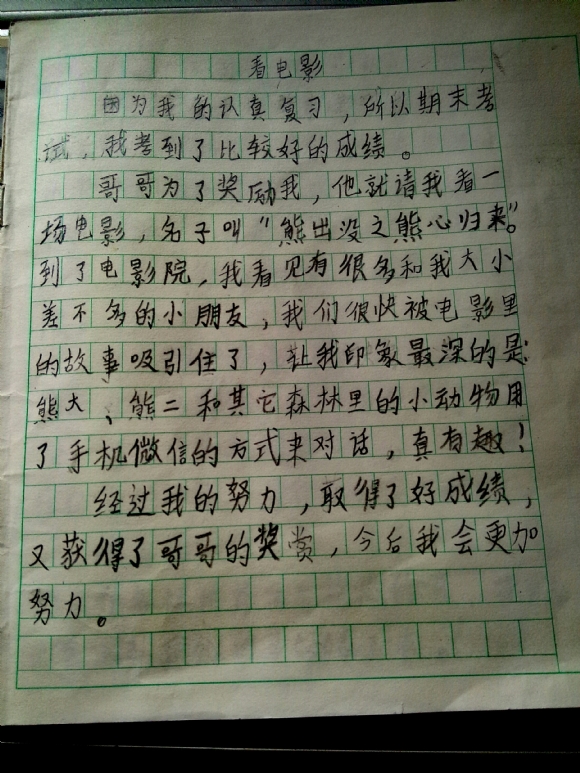 看电影
因为我的认真复习，所以期末考
试，我考到了比较好的成绩。
哥哥为了奖励我，他就请我看一
场电影，名子叫“熊出没之熊心归来”。
到了电影院，我看见有很多和我大小
差不多的小朋友，我们很快被电影里
的故事吸引住了，让我印象最深的是：
熊大、熊二和其它森林里的小动物用
了手机微信的方式来对话，真有趣！
经过我的努力，取得了好成绩，
又获得了哥哥的奖赏，今后我会更加
努力。